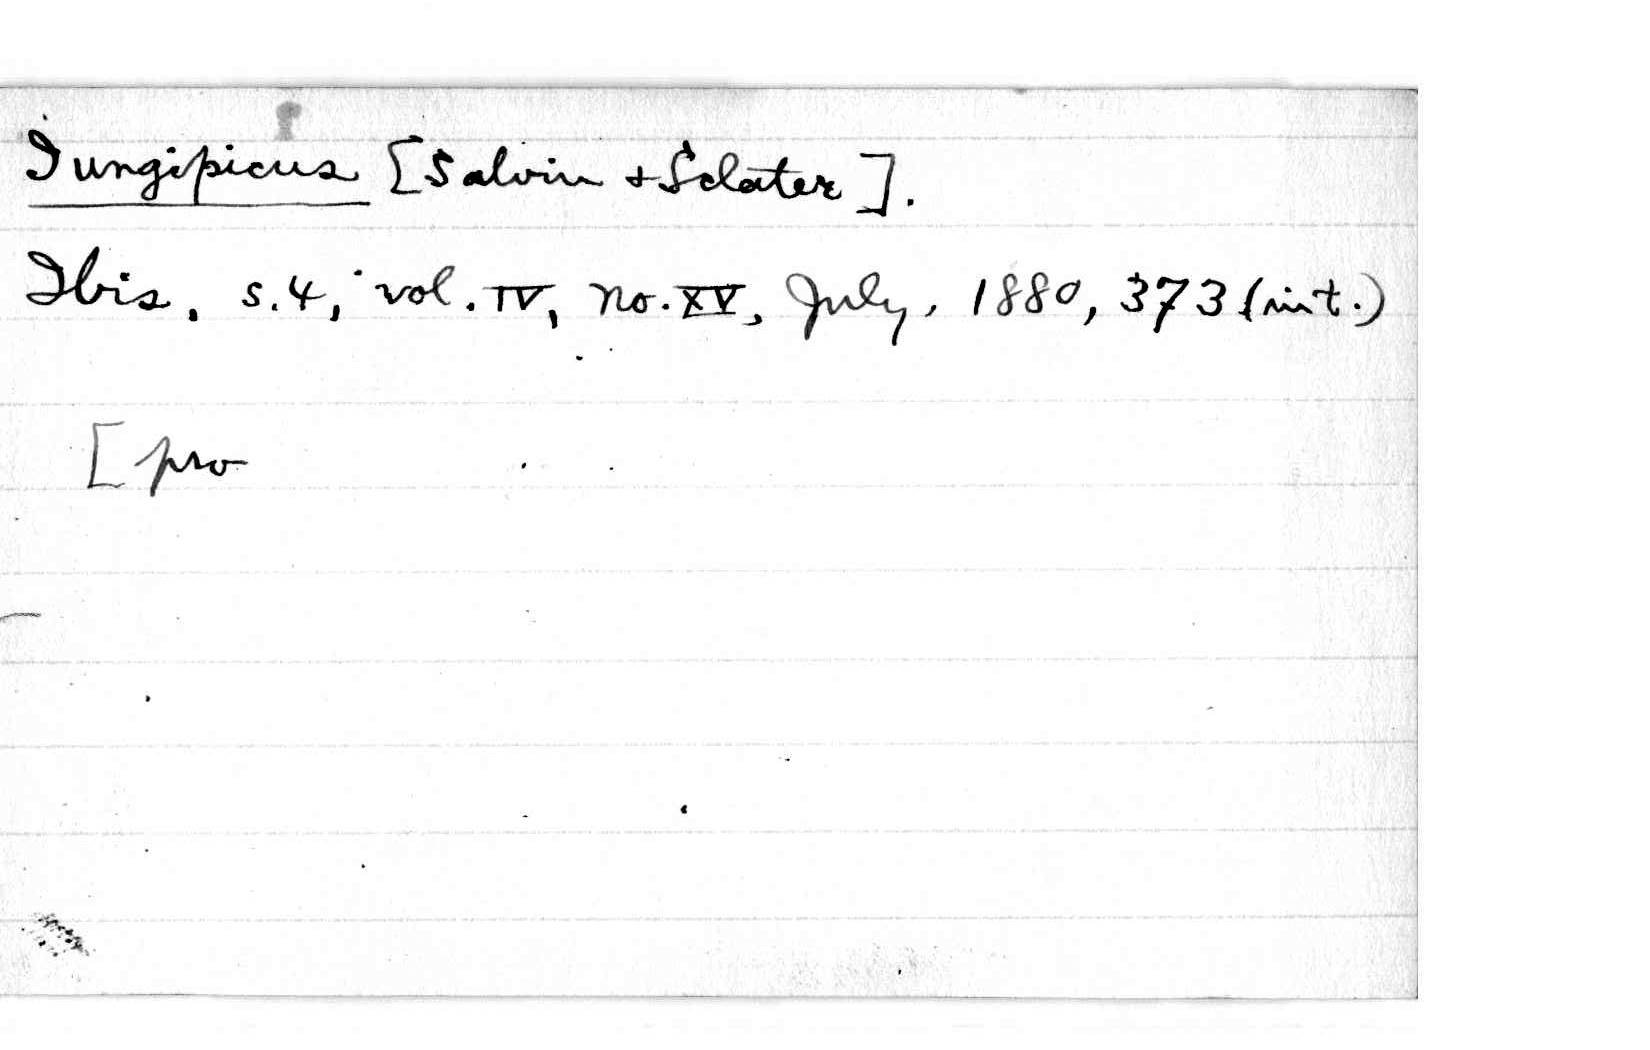 Iungipicus [Salvin + Sclater].
Ibis, s.4, vol. IV, no. XV, July, 1880, 373 (int.)
[pro